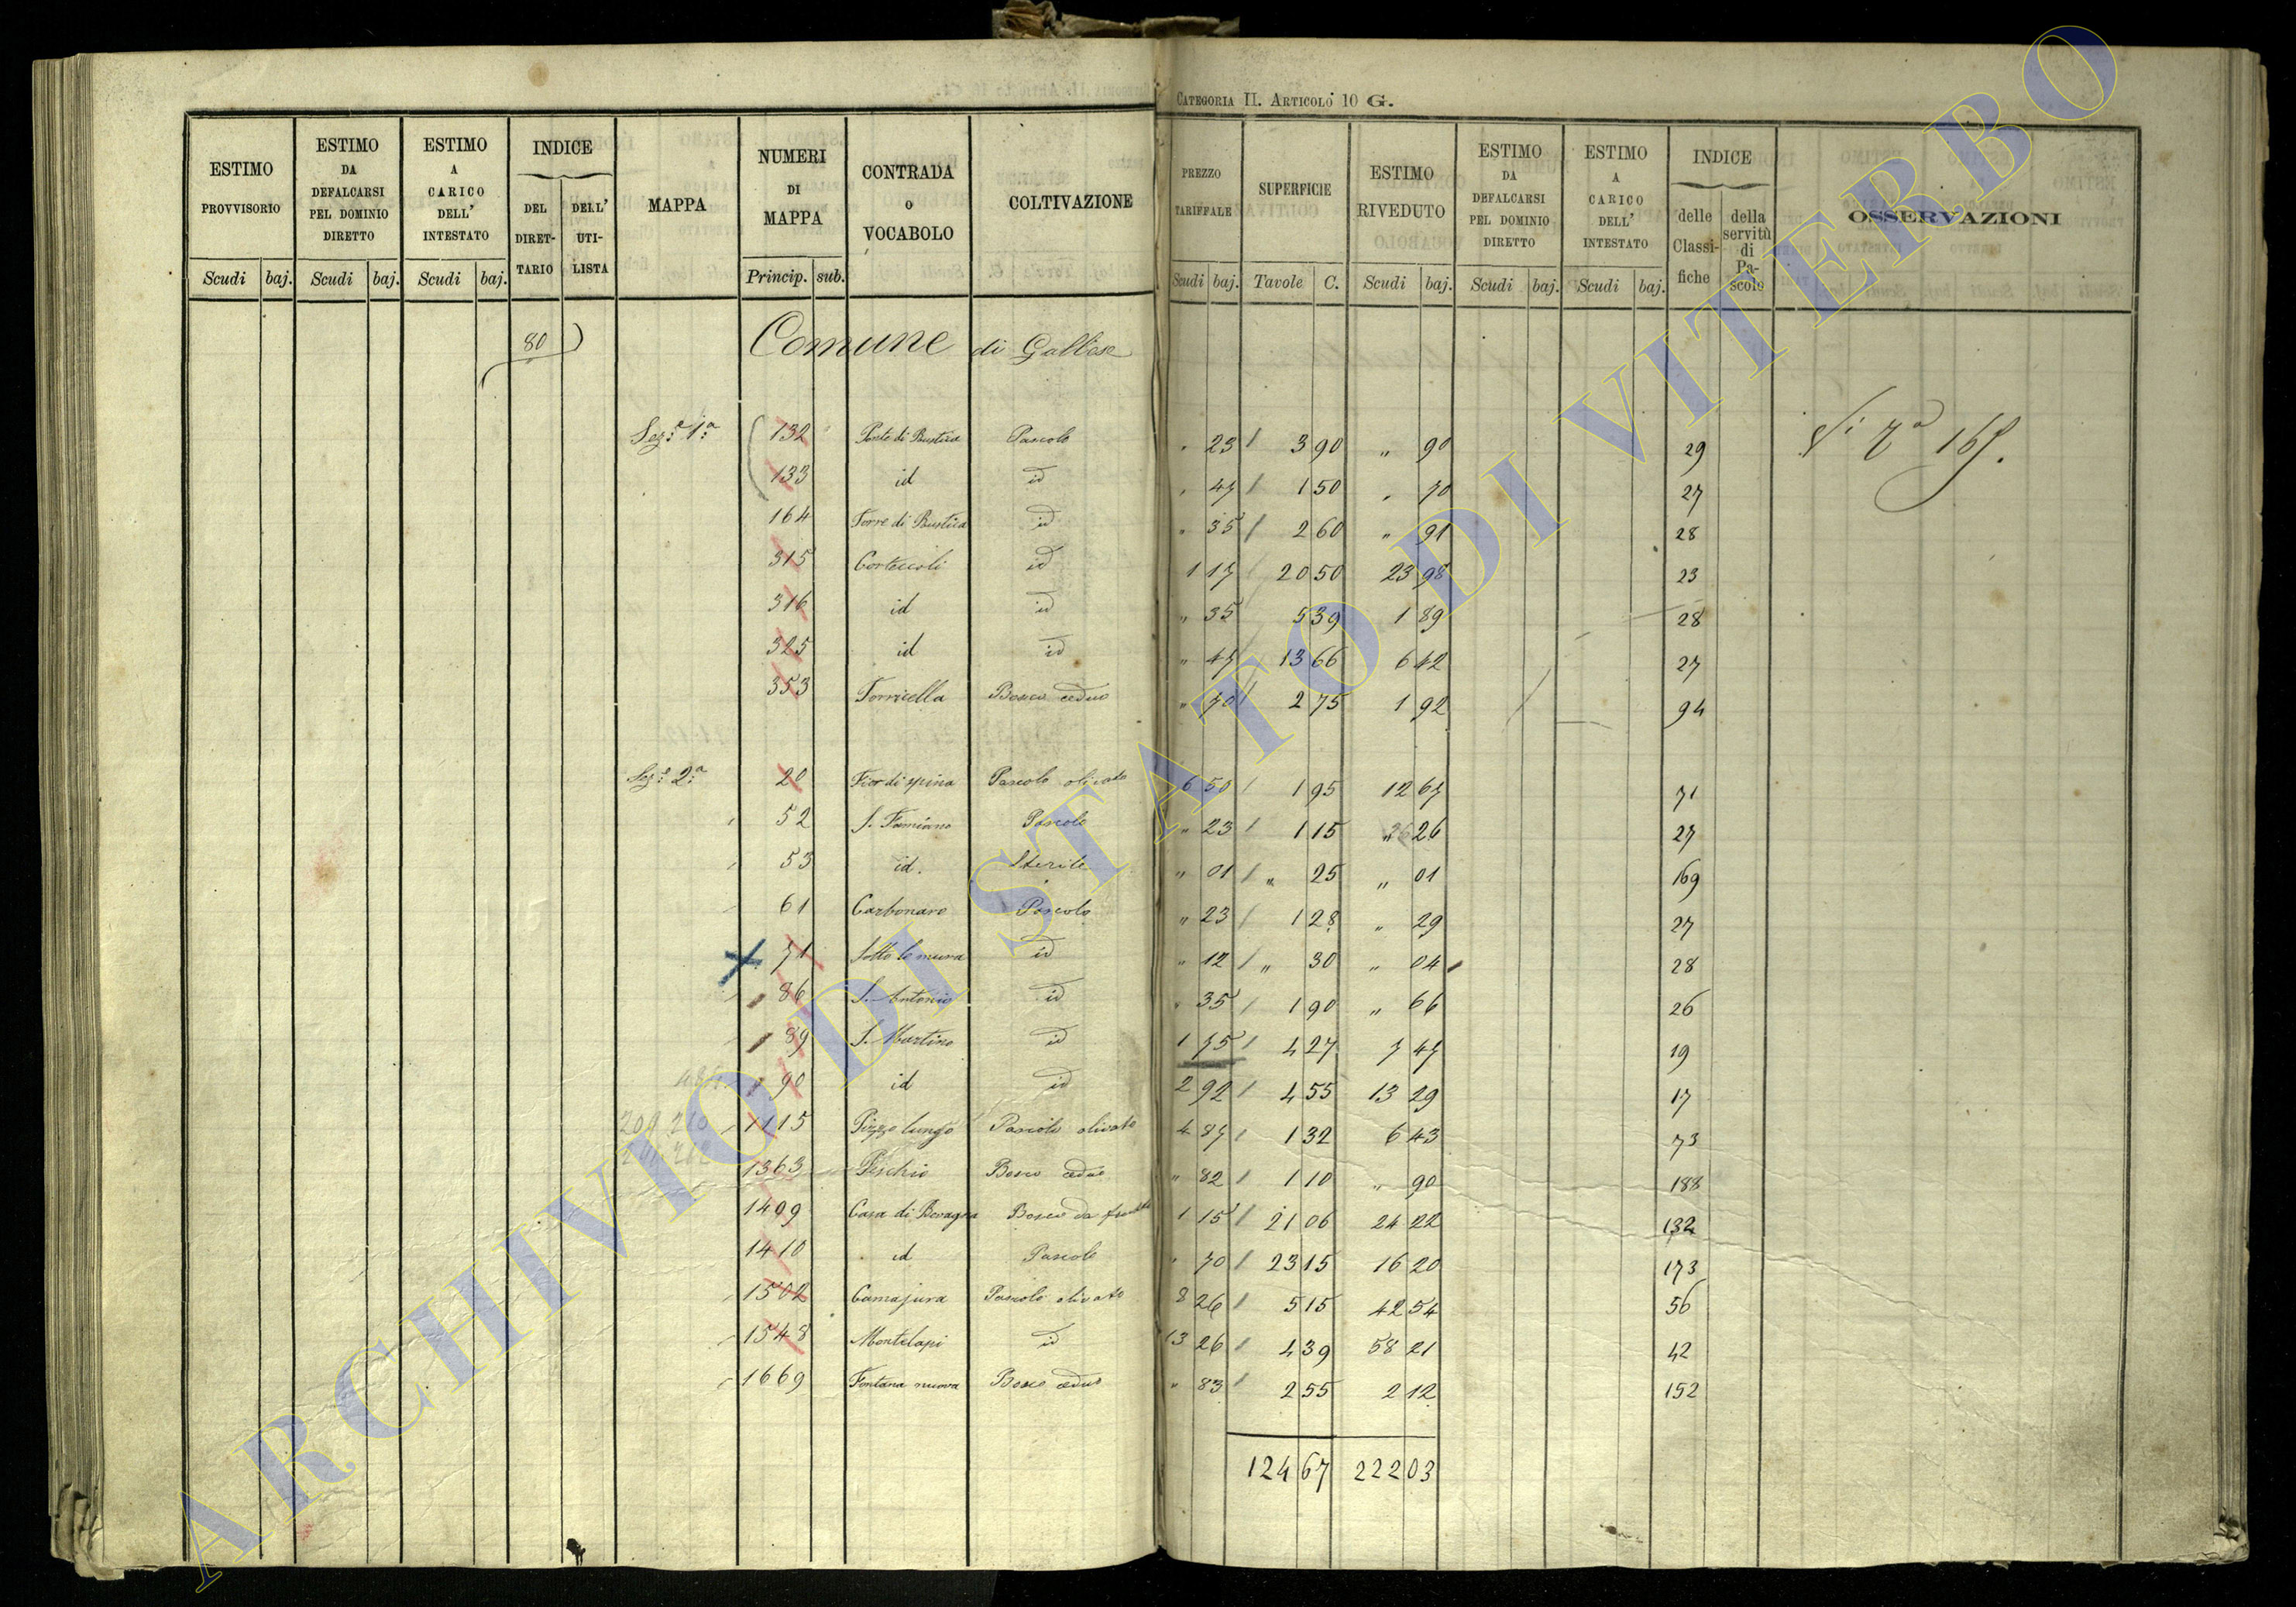 CATEGORIA II. ARTICOLO 10 G.
ESTIMO PROVVISORIO | ESTIMO DA DEFALCARSI PEL DOMINIO DIRETTO | ESTIMO A CARICO DELL' INTESTATO | INDICE DEL DIRET-TARIO | DELL' UTI-LISTA | MAPPA | NUMERI DI MAPPA | CONTRADA O VOCABOLO | COLTIVAZIONE | PREZZO TARIFFALE | SUPERFICIE | ESTIMO RIVEDUTO | ESTIMO DA DEFALCARSI PEL DOMINIO DIRETTO | ESTIMO A CARICO DELL' INTESTATO | INDICE delle Classi-fiche | della servitù di Pa-scolo | OSSERVAZIONI
Scudi | baj. | Scudi | baj. | Scudi | baj. | Princip. | sub. | Scudi | baj. | Tavole | C. | Scudi | baj. | Scudi | baj. | Scudi | baj.
80 Comune di Gallese
Sez.e 1.a 132 Ponte di Rustica Pascolo " 23 3 90 " 90 29 165.
133 id id " 47 1 50 " 70 27
164 Torre di Rustica id " 35 2 60 " 91 28
315 Corteccoli id 1 17 20 50 23 98 23
316 id id " 35 5 39 1 89 28
325 id id " 47 13 66 6 42 27
353 Torricella Bosco ceduo " 70 2 75 1 92 94
Sez.e 2.a 20 Fior di spina Pascolo olivato 6 50 1 95 12 67 71
52 S. Famiano Pascolo " 23 1 15 " 26 27
53 id. Sterile " 01 " 25 " 01 169
61 Carbonaro Pascolo " 23 1 28 " 29 27
71 Sotto le mura id " 12 " 30 " 04 28
86 S. Antonio id " 35 1 90 " 66 26
89 S. Martino id 1 75 4 27 7 47 19
90 id id 2 92 4 55 13 29 17
209 210 1115 Pizzo lungo Pascolo olivato 4 87 1 32 6 43 73
1363 Peschio Bosco ceduo " 82 1 10 " 90 188
1409 Casa di Bevagna Bosco da frutto 1 15 21 06 24 22 132
1410 id Pascolo " 70 23 15 16 20 173
1502 Camajura Pascolo olivato 8 26 5 15 42 54 56
1548 Montilapi id 13 26 4 39 58 21 42
1669 Fontana nuova Bosco ceduo " 83 2 55 2 12 152
124 67 222 03
ARCHIVIO DI STATO DI VITERBO